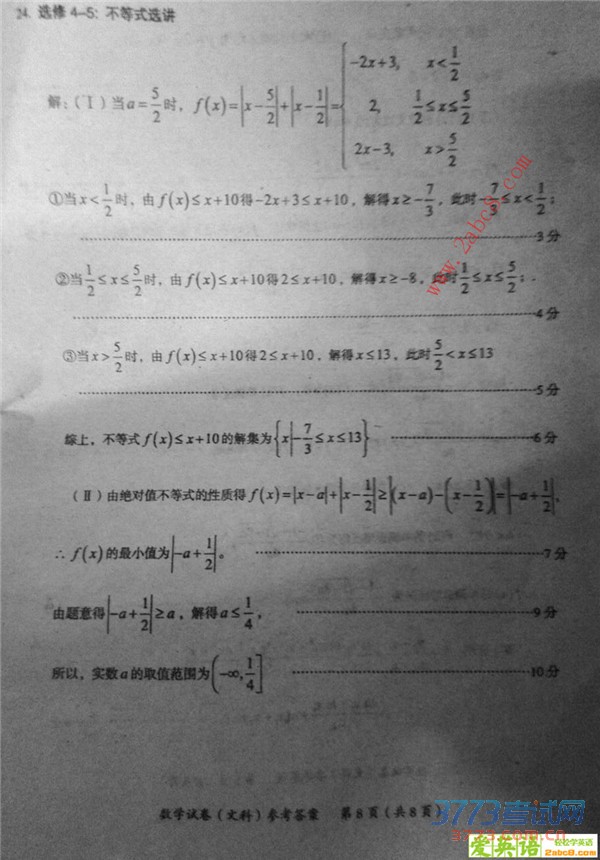 24. 选修 4-5: 不等式选讲
解:(Ⅰ)当a=5/2时, f(x)=|x-5/2|+|x-1/2|={-2x+3, x<1/2
2, 1/2≤x≤5/2
2x-3, x>5/2
①当x<1/2时, 由f(x)≤x+10得-2x+3≤x+10, 解得x≥-7/3, 此时-7/3≤x<1/2;
3分
②当1/2≤x≤5/2时, 由f(x)≤x+10得2≤x+10, 解得x≥-8, 此时1/2≤x≤5/2;
4分
③当x>5/2时, 由f(x)≤x+10得2≤x+10, 解得x≤13, 此时5/2<x≤13
5分
综上, 不等式f(x)≤x+10的解集为{x|-7/3≤x≤13} 6分
(Ⅱ)由绝对值不等式的性质得f(x)=|x-a|+|x-1/2|≥|(x-a)-(x-1/2)|=|-a+1/2|,
∴ f(x)的最小值为|-a+1/2|。 7分
由题意得|-a+1/2|≥a, 解得a≤1/4, 9分
所以, 实数a的取值范围为(-∞,1/4] 10分
数学试卷(文科)参考答案 第8页(共8页)
www.2abc8.com
3773考试网
3773.com.cn
爱英语 轻松学英语
2abc8.com